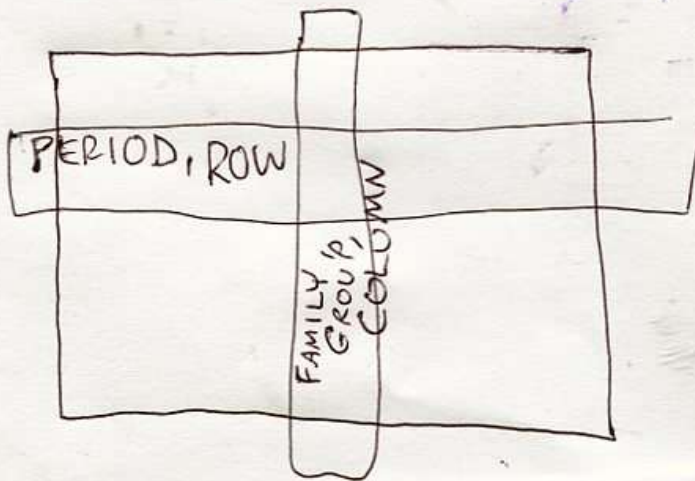 PERIOD, ROW
FAMILY
GROUP,
COLUMN